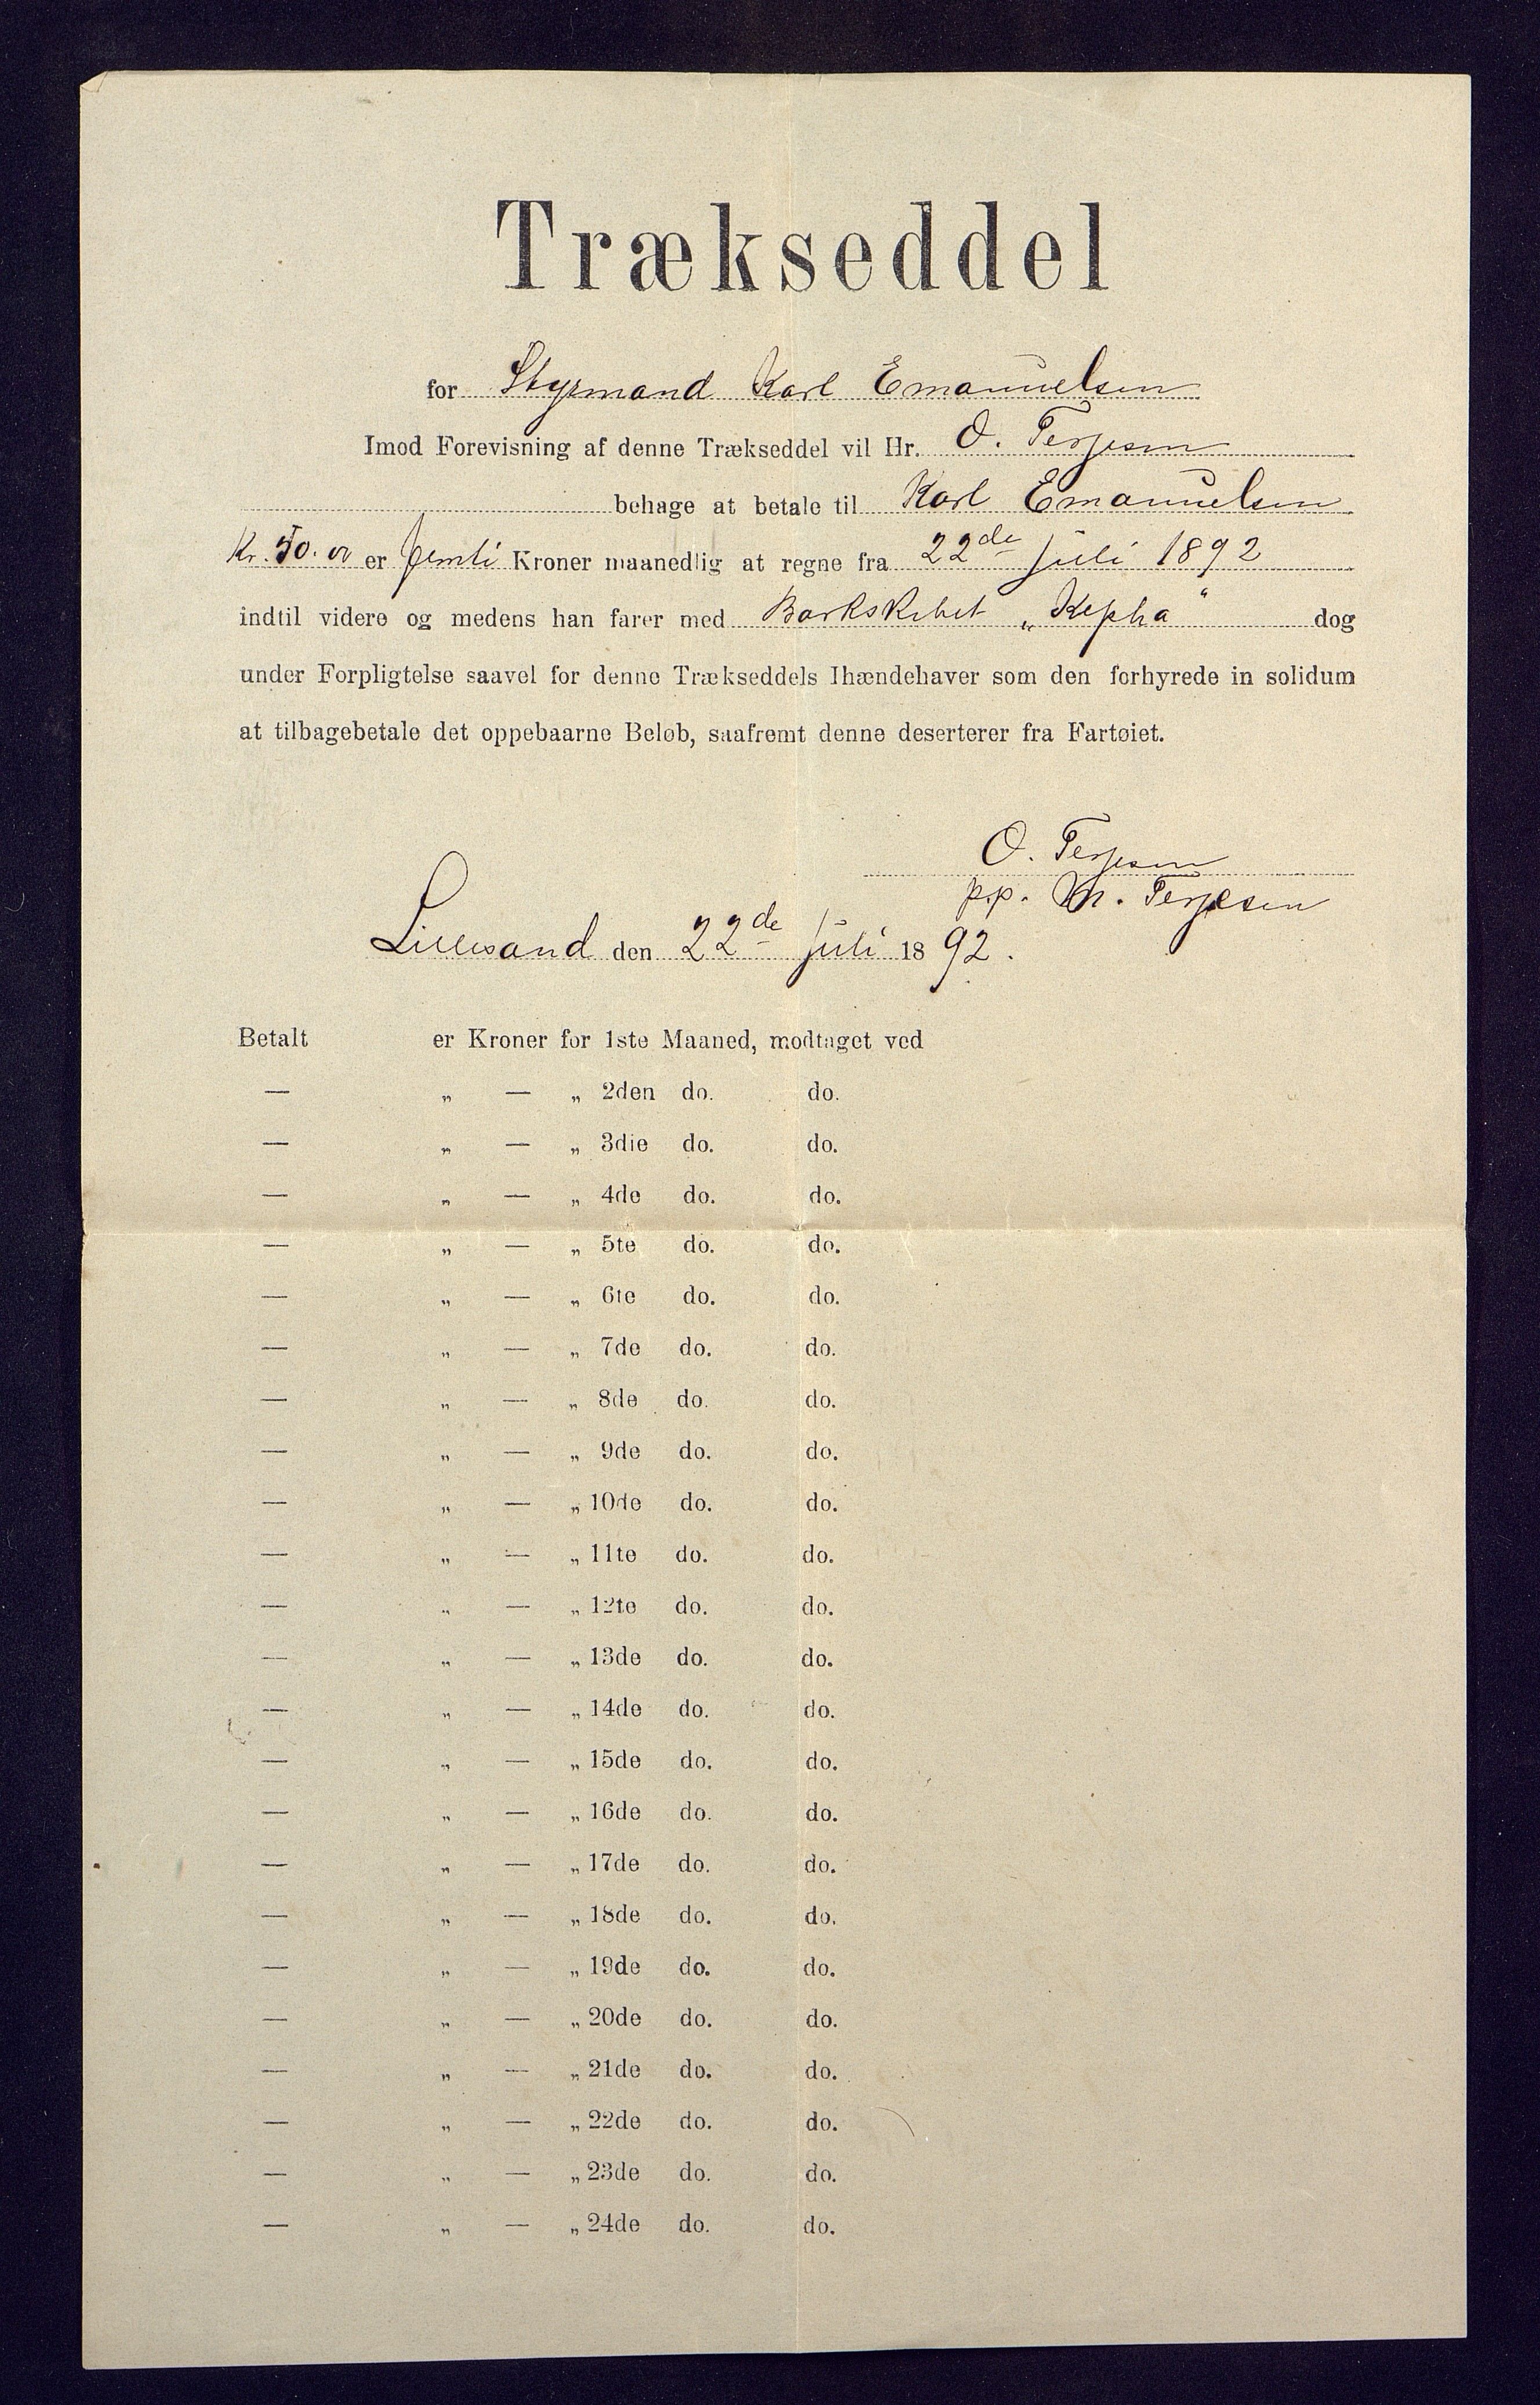 Trækseddel
for Styrmand Karl Emanuelsen
Imod Forevisning af denne Trækseddel vil Hr. O. Terjesen
behage at betale til Karl Emanuelsen
Kr. 50.00 er femti Kroner maanedlig at regne fra 22de Juli 1892
indtil videre og medens han farer med Barkskibet „Kepha" dog
under Forpligtelse saavel for denne Trækseddels Ihændehaver som den forhyrede in solidum
at tilbagebetale det oppebaarne Beløb, saafremt denne deserterer fra Fartøiet.
O. Terjesen
pp. M. Terjesen
Lillesand den 22de Juli 1892.
Betalt er Kroner for 1ste Maaned, modtaget ved
— „ — „ 2den do. do.
— „ — „ 3die do. do.
— „ — „ 4de do. do.
— „ — „ 5te do. do.
— „ — „ 6te do. do.
— „ — „ 7de do. do.
— „ — „ 8de do. do.
— „ — „ 9de do. do.
— „ — „ 10de do. do.
— „ — „ 11te do. do.
— „ — „ 12te do. do.
— „ — „ 13de do. do.
— „ — „ 14de do. do.
— „ — „ 15de do. do.
— „ — „ 16de do. do.
— „ — „ 17de do. do.
— „ — „ 18de do. do.
— „ — „ 19de do. do.
— „ — „ 20de do. do.
— „ — „ 21de do. do.
— „ — „ 22de do. do.
— „ — „ 23de do. do.
— „ — „ 24de do. do.